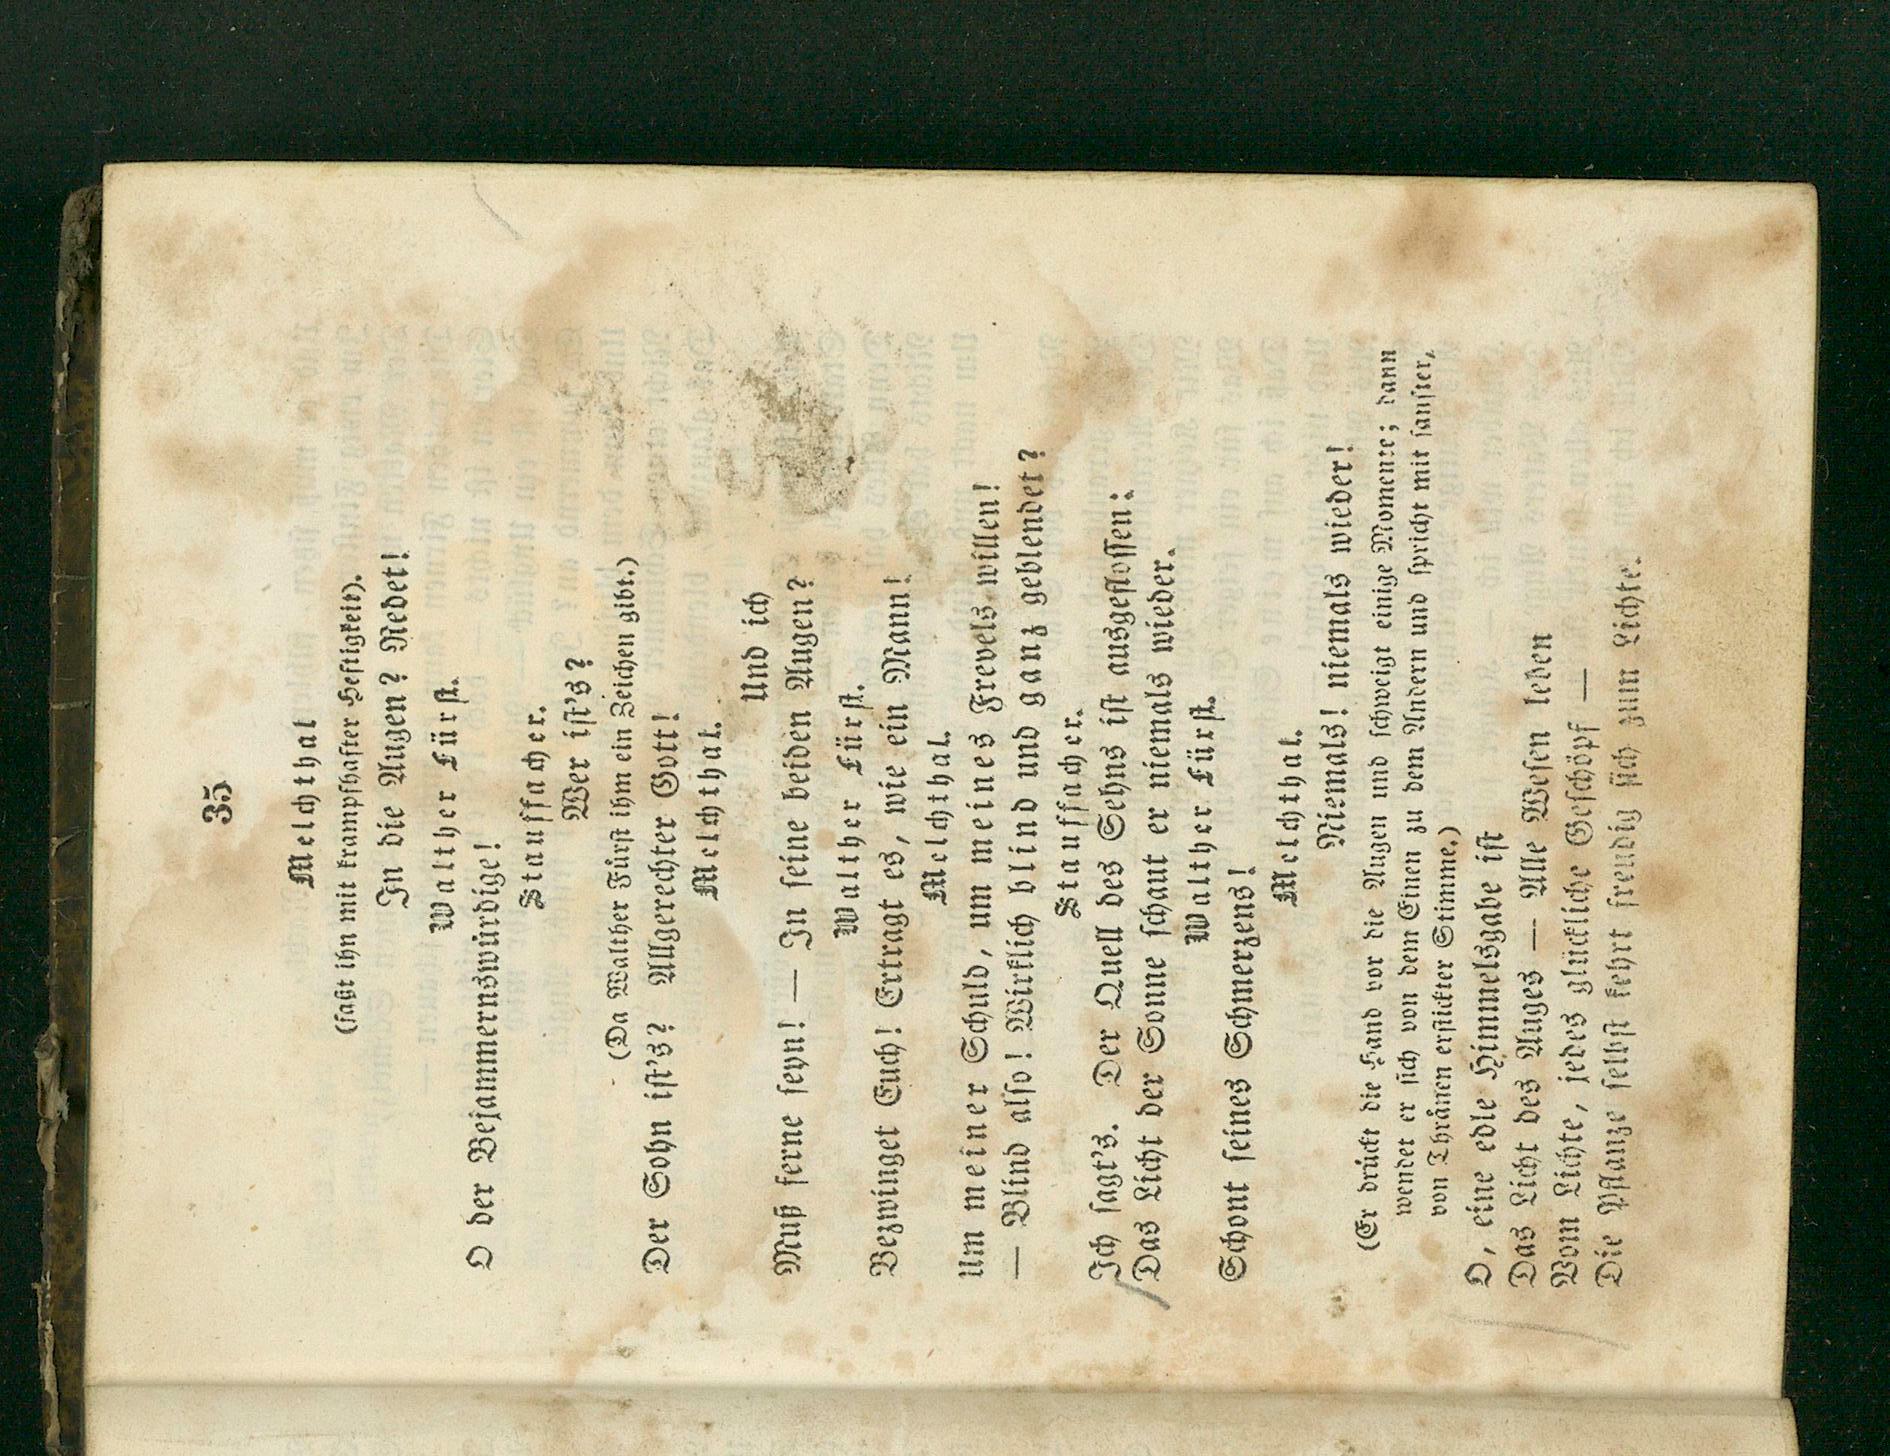 35
Melchthal
(faßt ihn mit krampfhafter Heftigkeit).
In die Augen? Redet!
Walther Fürst.
O der Bejammernswürdige!
Stauffacher.
Wer ist's?
(Da Walther Fürst ihm ein Zeichen gibt.)
Der Sohn ist's? Allgerechter Gott!
Melchthal.
Und ich
Muß ferne seyn! — In seine beiden Augen?
Walther Fürst.
Bezwinget Euch! Ertragt es, wie ein Mann!
Melchthal.
Um meiner Schuld, um meines Frevels willen!
— Blind also! Wirklich blind und ganz geblendet?
Stauffacher.
Ich sagt's. Der Quell des Sehns ist ausgeflossen;
Das Licht der Sonne schaut er niemals wieder.
Walther Fürst.
Schont seines Schmerzens!
Melchthal.
Niemals! niemals wieder!
(Er drückt die Hand vor die Augen und schweigt einige Momente; dann
wendet er sich von dem Einen zu dem Andern und spricht mit sanfter,
von Thränen erstickter Stimme.)
O, eine edle Himmelsgabe ist
Das Licht des Auges — Alle Wesen leben
Vom Lichte, jedes glückliche Geschöpf —
Die Pflanze selbst kehrt freudig sich zum Lichte.